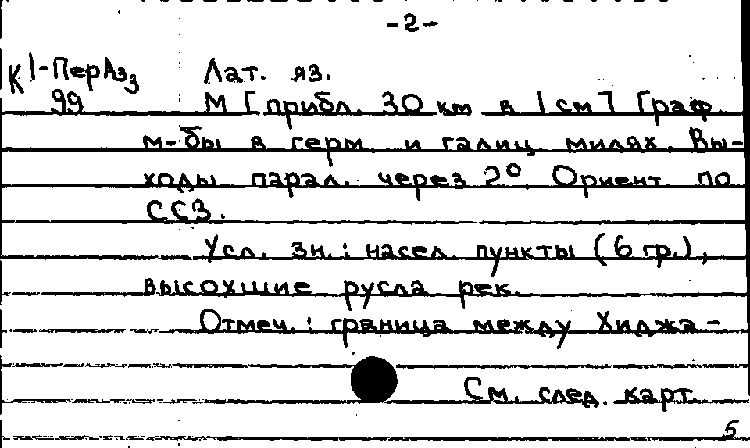 -2-
К 1-ПерАз3 Лат. яз.
99 М [прибл. 30 км в 1 см] Граф.
м-бы в герм. и галиц. милях. Вы-
ходы парал. через 2°. Ориент. по
ССЗ.
Усл. зн.: насел. пункты (6 гр.),
высохшие русла рек.
Отмеч.: граница между Хиджа-
См. след. карт.
5